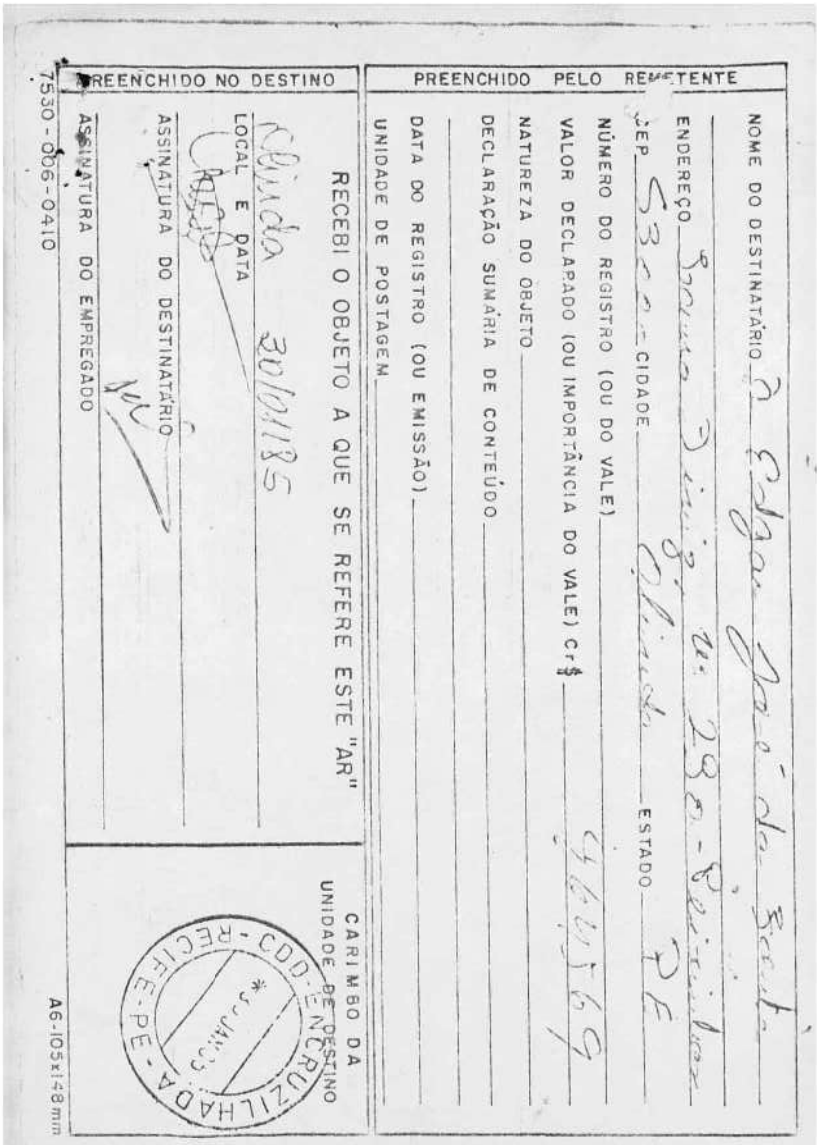 PREENCHIDO PELO REMETENTE
NOME DO DESTINATÁRIO José da
ENDEREÇO nº 290 -
CEP CIDADE Olinda ESTADO PE
NÚMERO DO REGISTRO (OU DO VALE)
VALOR DECLARADO (OU IMPORTÂNCIA DO VALE) Cr$
NATUREZA DO OBJETO
DECLARAÇÃO SUMÁRIA DE CONTEÚDO
DATA DO REGISTRO (OU EMISSÃO)
UNIDADE DE POSTAGEM
PREENCHIDO NO DESTINO
RECEBI O OBJETO A QUE SE REFERE ESTE "AR"
Olinda 30/01/85
LOCAL E DATA
ASSINATURA DO DESTINATÁRIO
ASSINATURA DO EMPREGADO
7530-006-0410
CARIMBO DA
UNIDADE DE DESTINO
CDD-ENCRUZILHADA-PE
RECIFE-
A6-105x148mm